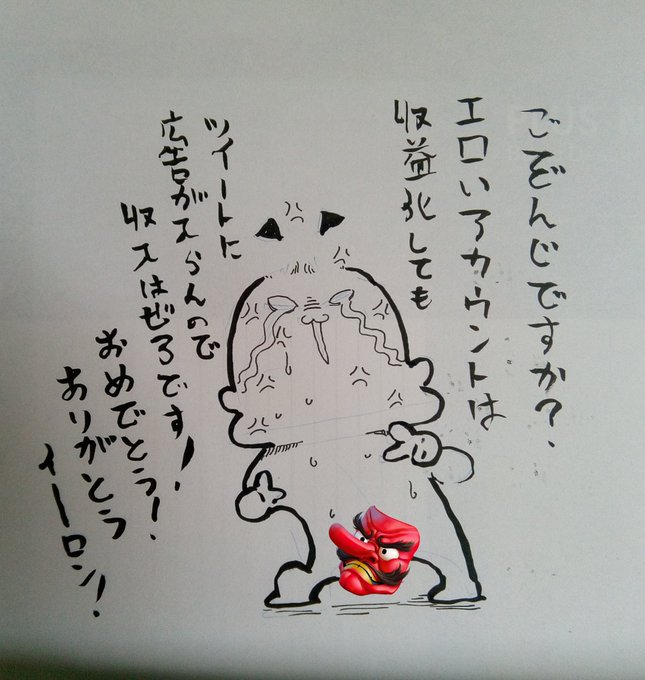 ごぞんじですか?、
エロいアカウントは
収益化しても
ツイートに
広告が入らんので
収入はゼロです!、
おめでとう!、
ありがとう
イーロン!